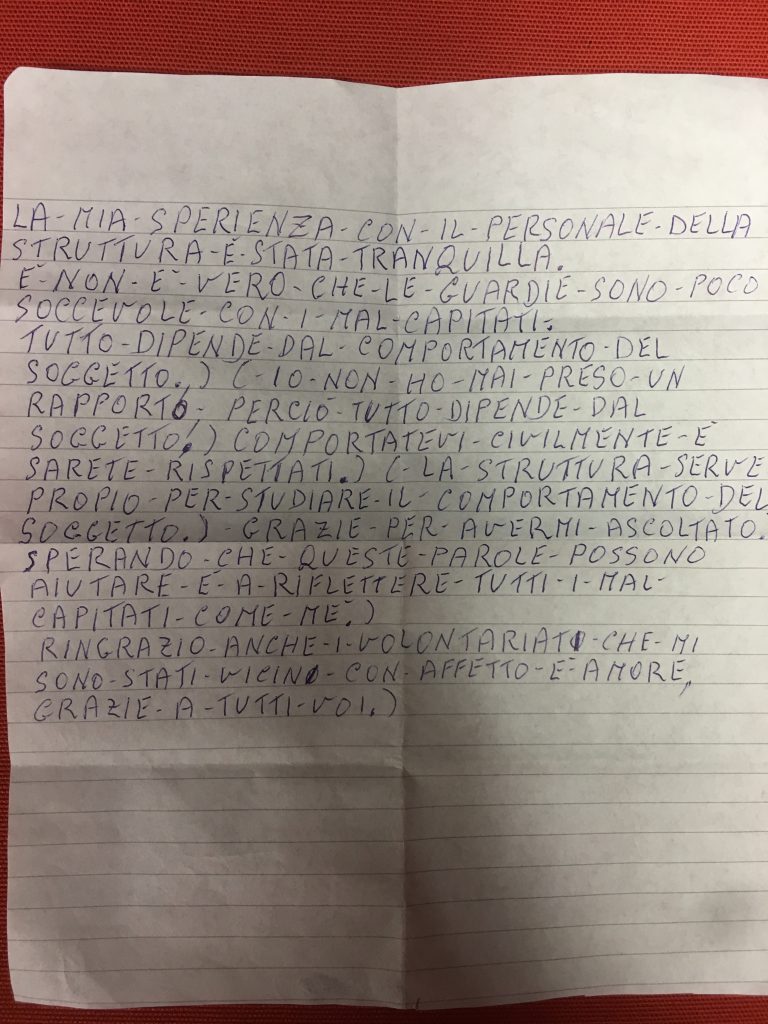 LA-MIA-SPERIENZA-CON-IL-PERSONALE-DELLA
STRUTTURA-È-STATA-TRANQUILLA.
È-NON-È-VERO-CHE-LE-GUARDIE-SONO-POCO
SOCCEVOLE-CON-I-MAL-CAPITATI.
TUTTO-DIPENDE-DAL-COMPORTAMENTO-DEL
SOGGETTO.,) (-IO-NON-HO-MAI-PRESO-UN
RAPPORTO, PERCIÒ-TUTTO-DIPENDE-DAL
SOGGETTO!) COMPORTATEVI-CIVILMENTE-È
SARETE-RISPETTATI.) (-LA-STRUTTURA-SERVE
PROPIO-PER-STUDIARE-IL-COMPORTAMENTO-DEL
SOGGETTO.)-GRAZIE-PER-AVERMI-ASCOLTATO.
SPERANDO-CHE-QUESTE-PAROLE-POSSONO
AIUTARE-È-A-RIFLETTERE-TUTTI-I-MAL-
CAPITATI-COME-ME.)
RINGRAZIO-ANCHE-I-VOLONTARIATI-CHE-MI
SONO-STATI-VICINO-CON-AFFETTO-È-AMORE,
GRAZIE-A-TUTTI-VOI.)